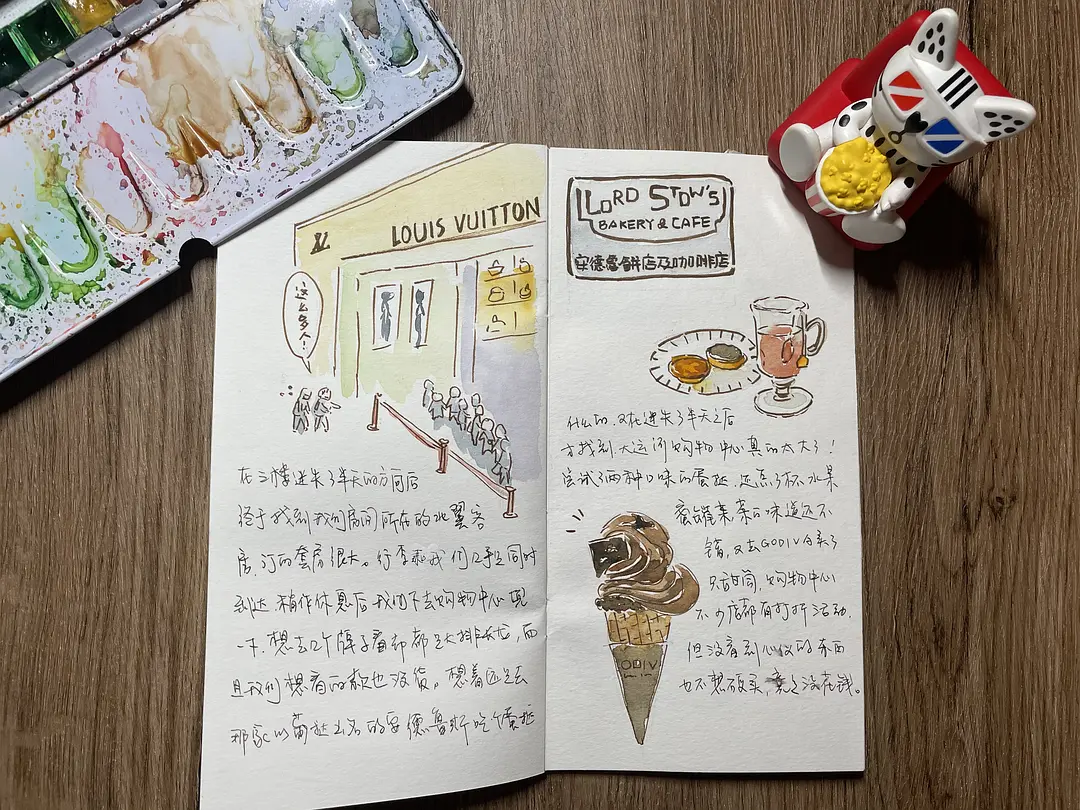 LOUIS VUITTON
这么多人!
在三楼迷失了半天的方向后
终于找到我们房间所在的北翼客
房,订的套房很大。行李和我们几乎是同时
到达,稍作休息后我们下去购物中心逛
一下,想去几个牌子看却都是大排长龙,而
且我们想看的款也没货。想着还是去
那家以葡挞出名的安德鲁斯吃个蛋挞
LORD STOW'S
BAKERY & CAFE
安德魯餅店及咖啡店
什么的,又在迷失了半天之后
才找到,大运河购物中心真的太大了!
尝试了两种口味的蛋挞,还点了杯水果
蜜罐茶,茶的味道还不
错,又去GODIVA买了
只甜筒,购物中心
不少店都有打折活动,
但没看到心仪的东西
也不想破买,竟之没花钱。
ODIV